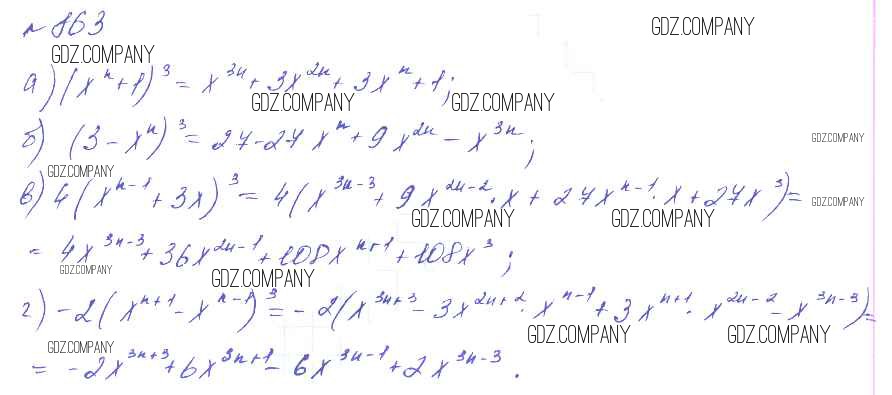 № 863
GDZ.COMPANY
GDZ.COMPANY
а) (xⁿ + 1)³ = x³ⁿ + 3x²ⁿ + 3xⁿ + 1;
GDZ.COMPANY GDZ.COMPANY
б) (3 - xⁿ)³ = 27 - 27xⁿ + 9x²ⁿ - x³ⁿ;
GDZ.COMPANY
GDZ.COMPANY
в) 4(xⁿ⁻¹ + 3x)³ = 4(x³ⁿ⁻³ + 9x²ⁿ⁻² · x + 27xⁿ⁻¹ · x + 27x³) =
GDZ.COMPANY
GDZ.COMPANY GDZ.COMPANY
= 4x³ⁿ⁻³ + 36x²ⁿ⁻¹ + 108xⁿ⁺¹ + 108x³;
GDZ.COMPANY GDZ.COMPANY
г) -2(xⁿ⁺¹ - xⁿ⁻¹)³ = -2(x³ⁿ⁺³ - 3x²ⁿ⁺² · xⁿ⁻¹ + 3xⁿ⁺¹ · x²ⁿ⁻² - x³ⁿ⁻³) =
GDZ.COMPANY GDZ.COMPANY
GDZ.COMPANY
= -2x³ⁿ⁺³ + 6x³ⁿ⁺¹ - 6x³ⁿ⁻¹ + 2x³ⁿ⁻³.